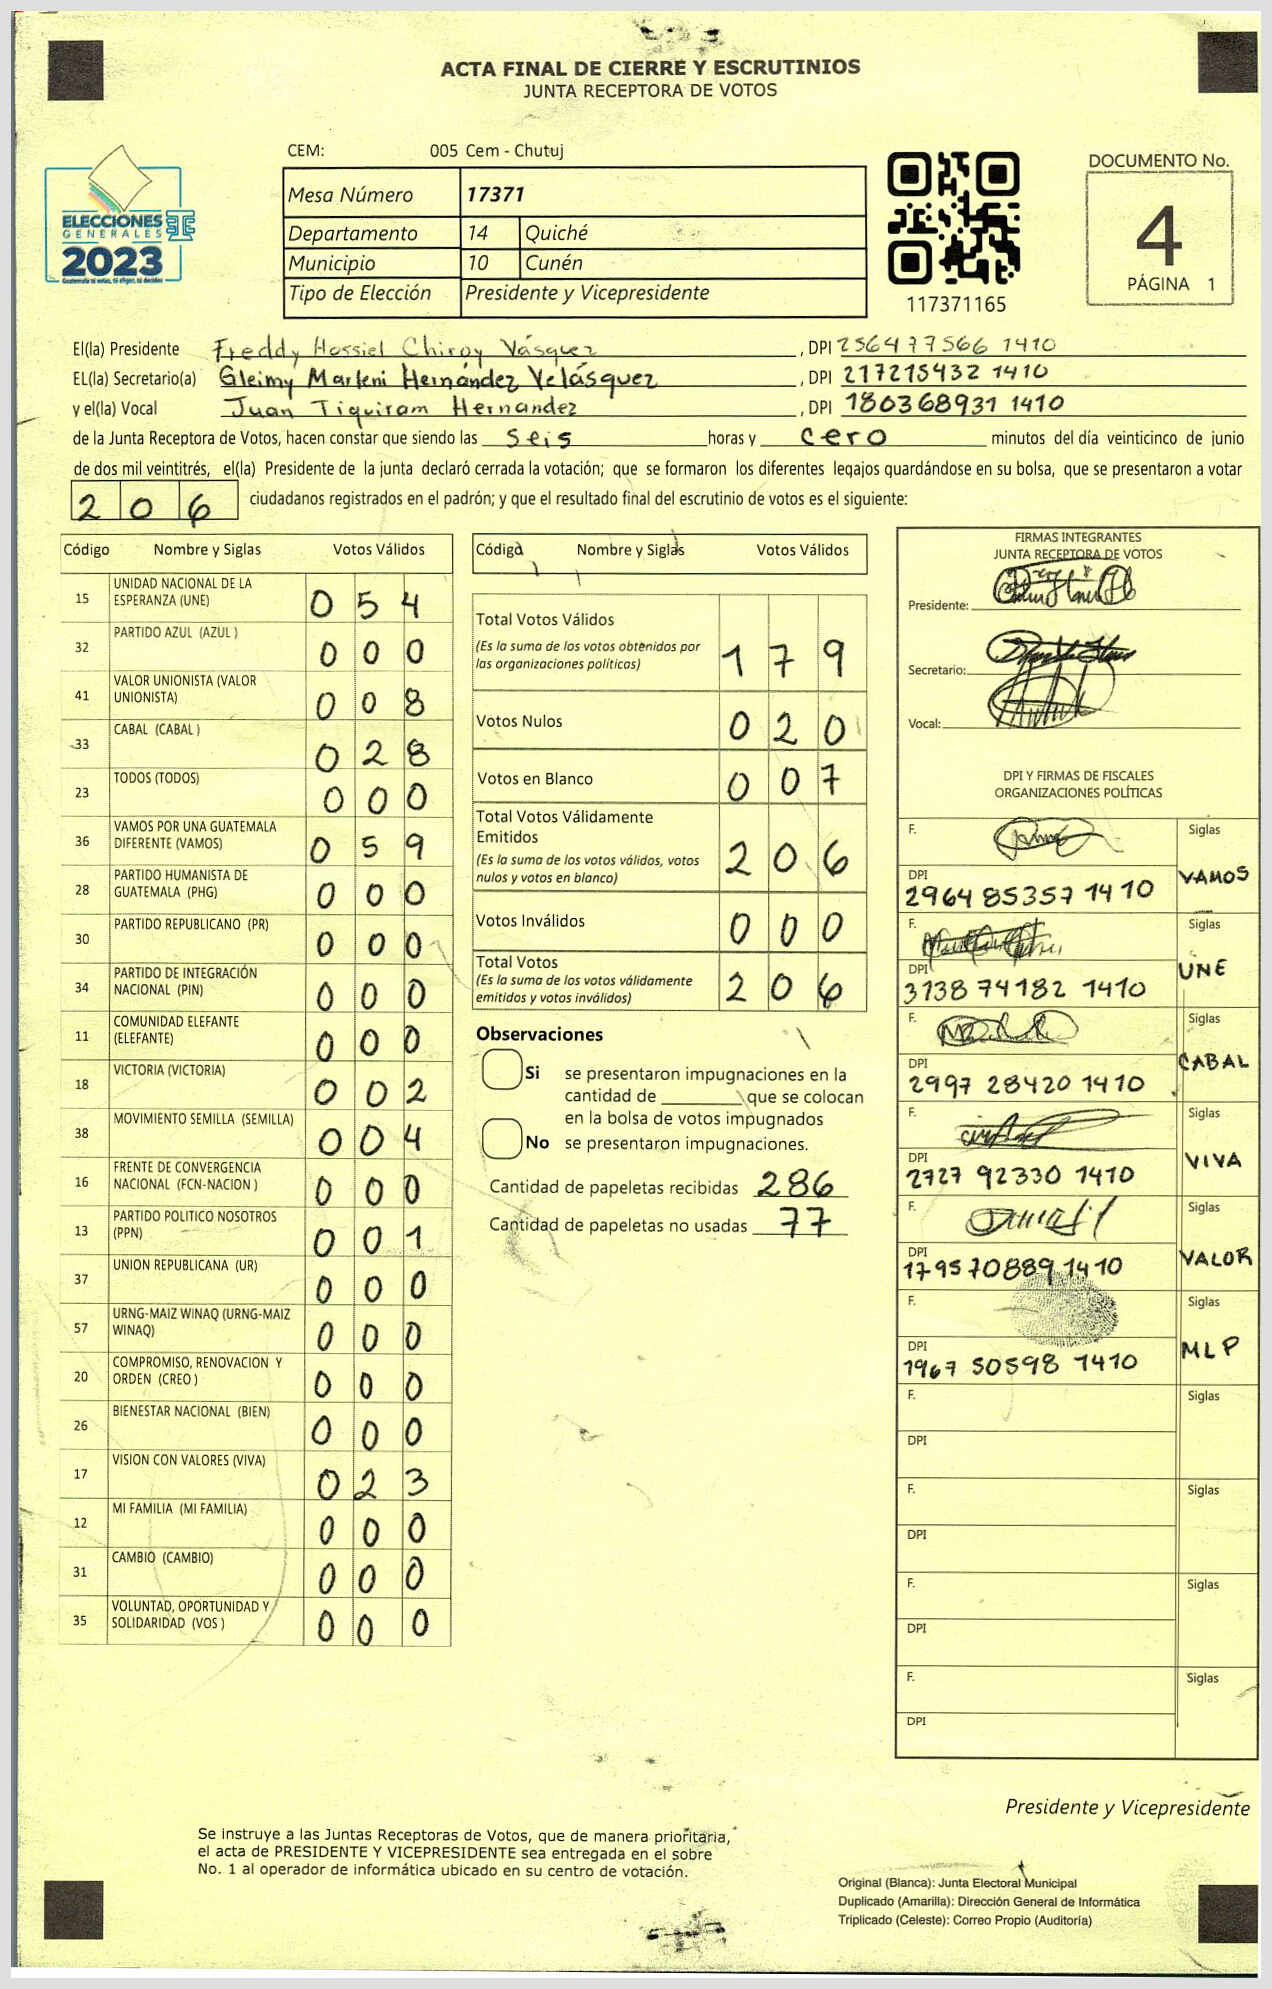 ACTA FINAL DE CIERRE Y ESCRUTINIOS
JUNTA RECEPTORA DE VOTOS
CEM: 005 Cem - Chutuj
Mesa Número 17371
Departamento 14 Quiché
Municipio 10 Cunén
Tipo de Elección Presidente y Vicepresidente
ELECCIONES
GENERALES
2023
117371165
DOCUMENTO No.
4
PÁGINA 1
El(la) Presidente Freddy Hossiel Chiroy Vásquez, DPI 256477566 1410
EL(la) Secretario(a) Gleimy Marleni Hernández Velásquez, DPI 217215432 1410
y el(la) Vocal Juan Tiquiram Hernandez, DPI 180368931 1410
de la Junta Receptora de Votos, hacen constar que siendo las seis horas y cero minutos del día veinticinco de junio
de dos mil veintitrés, el(la) Presidente de la junta declaró cerrada la votación; que se formaron los diferentes legajos quardándose en su bolsa, que se presentaron a votar
206 ciudadanos registrados en el padrón; y que el resultado final del escrutinio de votos es el siguiente:
Código Nombre y Siglas Votos Válidos
15 UNIDAD NACIONAL DE LA ESPERANZA (UNE) 054
32 PARTIDO AZUL (AZUL ) 000
41 VALOR UNIONISTA (VALOR UNIONISTA) 008
33 CABAL (CABAL ) 028
23 TODOS (TODOS) 000
36 VAMOS POR UNA GUATEMALA DIFERENTE (VAMOS) 059
28 PARTIDO HUMANISTA DE GUATEMALA (PHG) 000
30 PARTIDO REPUBLICANO (PR) 000
34 PARTIDO DE INTEGRACIÓN NACIONAL (PIN) 000
11 COMUNIDAD ELEFANTE (ELEFANTE) 000
18 VICTORIA (VICTORIA) 002
38 MOVIMIENTO SEMILLA (SEMILLA) 004
16 FRENTE DE CONVERGENCIA NACIONAL (FCN-NACION ) 000
13 PARTIDO POLITICO NOSOTROS (PPN) 001
37 UNION REPUBLICANA (UR) 000
57 URNG-MAIZ WINAQ (URNG-MAIZ WINAQ) 000
20 COMPROMISO, RENOVACION Y ORDEN (CREO ) 000
26 BIENESTAR NACIONAL (BIEN) 000
17 VISION CON VALORES (VIVA) 023
12 MI FAMILIA (MI FAMILIA) 000
31 CAMBIO (CAMBIO) 000
35 VOLUNTAD, OPORTUNIDAD Y SOLIDARIDAD (VOS ) 000
Código Nombre y Siglas Votos Válidos
Total Votos Válidos 179
(Es la suma de los votos obtenidos por
las organizaciones políticas)
Votos Nulos 020
Votos en Blanco 007
Total Votos Válidamente
Emitidos 206
(Es la suma de los votos válidos, votos
nulos y votos en blanco)
Votos Inválidos 000
Total Votos 206
(Es la suma de los votos válidamente
emitidos y votos inválidos)
Observaciones
Si se presentaron impugnaciones en la
cantidad de que se colocan
en la bolsa de votos impugnados
No se presentaron impugnaciones.
Cantidad de papeletas recibidas 286
Cantidad de papeletas no usadas 77
FIRMAS INTEGRANTES
JUNTA RECEPTORA DE VOTOS
Presidente:
Secretario:
Vocal:
DPI Y FIRMAS DE FISCALES
ORGANIZACIONES POLÍTICAS
F. Siglas
DPI 2964 85357 1410 VAMOS
F. Siglas
DPI 3138 74182 1410 UNE
F. Siglas
DPI 2997 28420 1410 CABAL
F. Siglas
DPI 2727 92330 1410 VIVA
F. Siglas
DPI 1795 70889 1410 VALOR
F. Siglas
DPI 1967 50598 1410 MLP
F. Siglas
DPI
F. Siglas
DPI
F. Siglas
DPI
F. Siglas
DPI
Presidente y Vicepresidente
Se instruye a las Juntas Receptoras de Votos, que de manera prioritaria,
el acta de PRESIDENTE Y VICEPRESIDENTE sea entregada en el sobre
No. 1 al operador de informática ubicado en su centro de votación.
Original (Blanca): Junta Electoral Municipal
Duplicado (Amarilla): Dirección General de Informática
Triplicado (Celeste): Correo Propio (Auditoría)